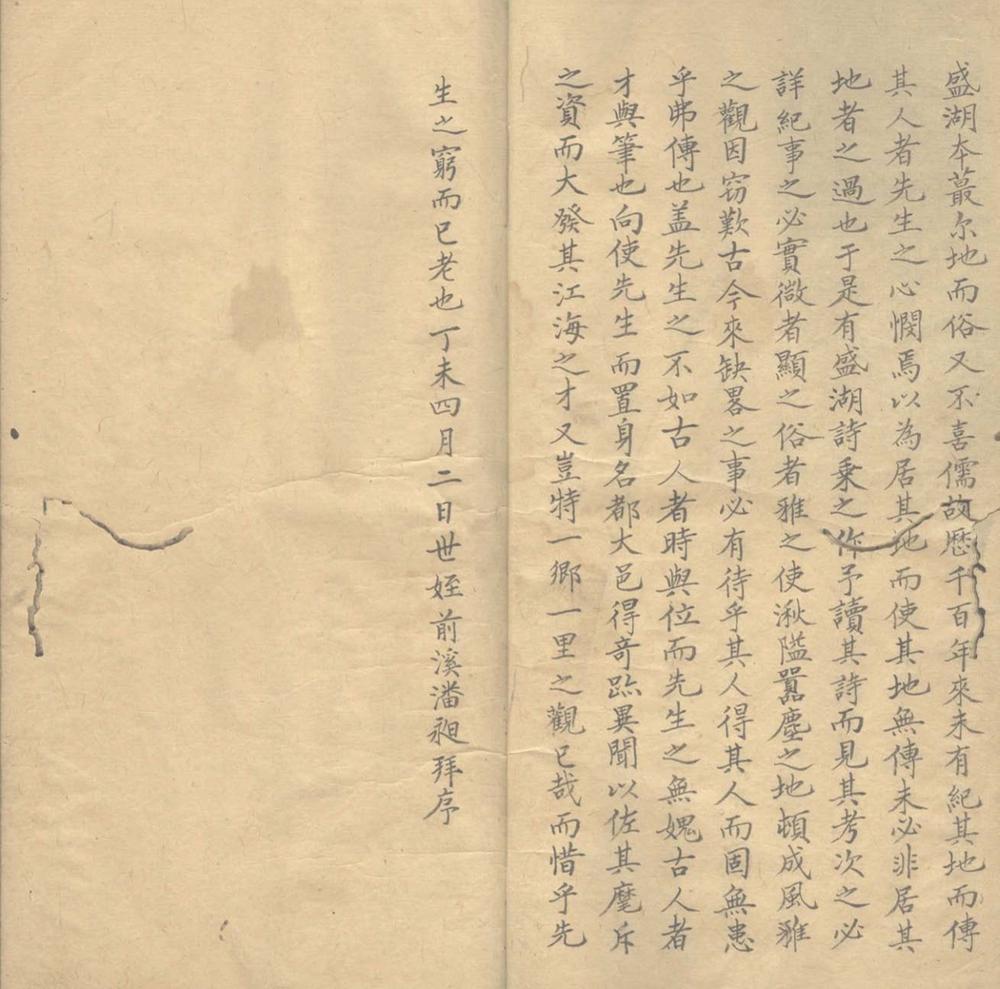 盛湖本蕞尔地而俗又不喜儒故歷千百年來未有紀其地而傳
其人者先生之心憫焉以為居其地而使其地無傳未必非居其
地者之過也于是有盛湖詩乗之作予讀其詩而見其考次之必
詳紀事之必實微者顯之俗者雅之使湫隘嚣塵之地頓成風雅
之觀因窃歎古今來缺畧之事必有待乎其人得其人而固無患
乎弗傳也盖先生之不如古人者時與位而先生之無媿古人者
才與筆也向使先生而置身名都大邑得竒跡異聞以佐其麾斥
之資而大發其江海之才又豈特一鄉一里之觀已哉而惜乎先
生之窮而已老也丁未四月二日世姪前溪潘昶拜序